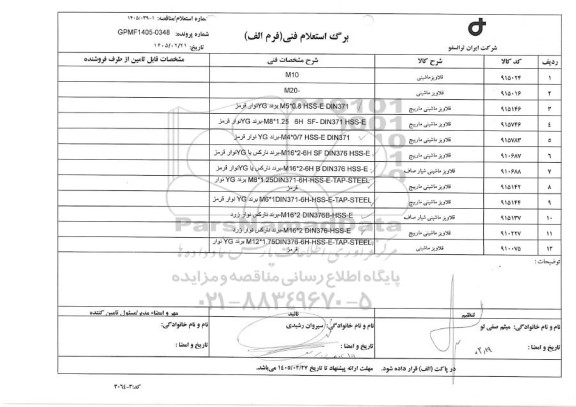 شماره استعلام/مناقصه: ۱۴۰۵/۰۳۹-۱
برگ استعلام فنی(فرم الف)
شماره پرونده: GPMF1405-0348
تاریخ: ۱۴۰۵/۰۲/۲۱
شرکت ایران ترانسفو
ردیف کد کالا شرح کالا شرح مشخصات فنی مشخصات قابل تامین از طرف فروشنده
۱ ۹۱۵۰۲۴ قلاویزماشینی M10
۲ ۹۱۵۰۱۶ قلاویز ماشینی M20-
۳ ۹۱۵۱۴۶ قلاویز ماشینی مارپیچ M5*0.8 HSS-E DIN371 برند YGنوار قرمز
۴ ۹۱۵۷۴۶ قلاویز ماشینی مارپیچ M8*1.25 6H SF- DIN371 HSS-E-برند YGنوار قرمز
۵ ۹۱۵۷۸۳ قلاویز ماشینی مارپیچ M4*0/7 HSS-E DIN371-برند YG نوار قرمز
۶ ۹۱۰۶۸۷ قلاویز ماشینی مارپیچ M16*2-6H SF DIN376 HSS-E-برند نارکس یا YGنوار قرمز
۷ ۹۱۰۶۸۸ قلاویز ماشینی شیار صاف M16*2-6H B DIN376 HSS-E-برند نارکس یا YGنوار قرمز
۸ ۹۱۵۱۴۲ قلاویز ماشینی مارپیچ M8*1.25DIN371-6H-HSS-E-TAP-STEEL برند YG نوار قرمز
۹ ۹۱۵۱۴۴ قلاویز ماشینی مارپیچ M6*1DIN371-6H-HSS-E-TAP-STEEL برند YG نوار قرمز
۱۰ ۹۱۵۱۳۷ قلاویز ماشینی شیار صاف M16*2 DIN376B-HSS-E-برند نارکس نوار زرد
۱۱ ۹۱۰۲۲۷ قلاویز ماشینی مارپیچ M16*2 DIN376-HSS-E-برند نارکس نوار زرد
۱۲ ۹۱۰۰۷۵ قلاویز ماشینی M12*1.75DIN376-6H-HSS-E-TAP-STEEL برند YG نوار قرمز
توضیحات :
ParsNamadData
پایگاه اطلاع رسانی مناقصه و مزایده
۰۲۱-۸۸۳۴۹۶۷۰-۵
تنظیم تائید مهر و امضاء مدیر/مسئول تامین کننده
نام و نام خانوادگی: میثم صفی لو نام و نام خانوادگی: سیروان رشیدی نام و نام خانوادگی:
تاریخ و امضا : تاریخ و امضا : تاریخ و امضا :
در پاکت (الف) قرار داده شود. مهلت ارائه پیشنهاد تا تاریخ ۱۴۰۵/۰۲/۲۷ می‌باشد.
کد:۳-۳۰۶۴